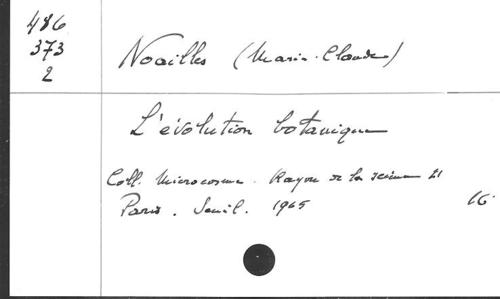 486
373
2
Noailles (Marie-Claude)
L'évolution botanique
Coll. Microcosme. Rayon de la science 21
Paris. Seuil. 1965